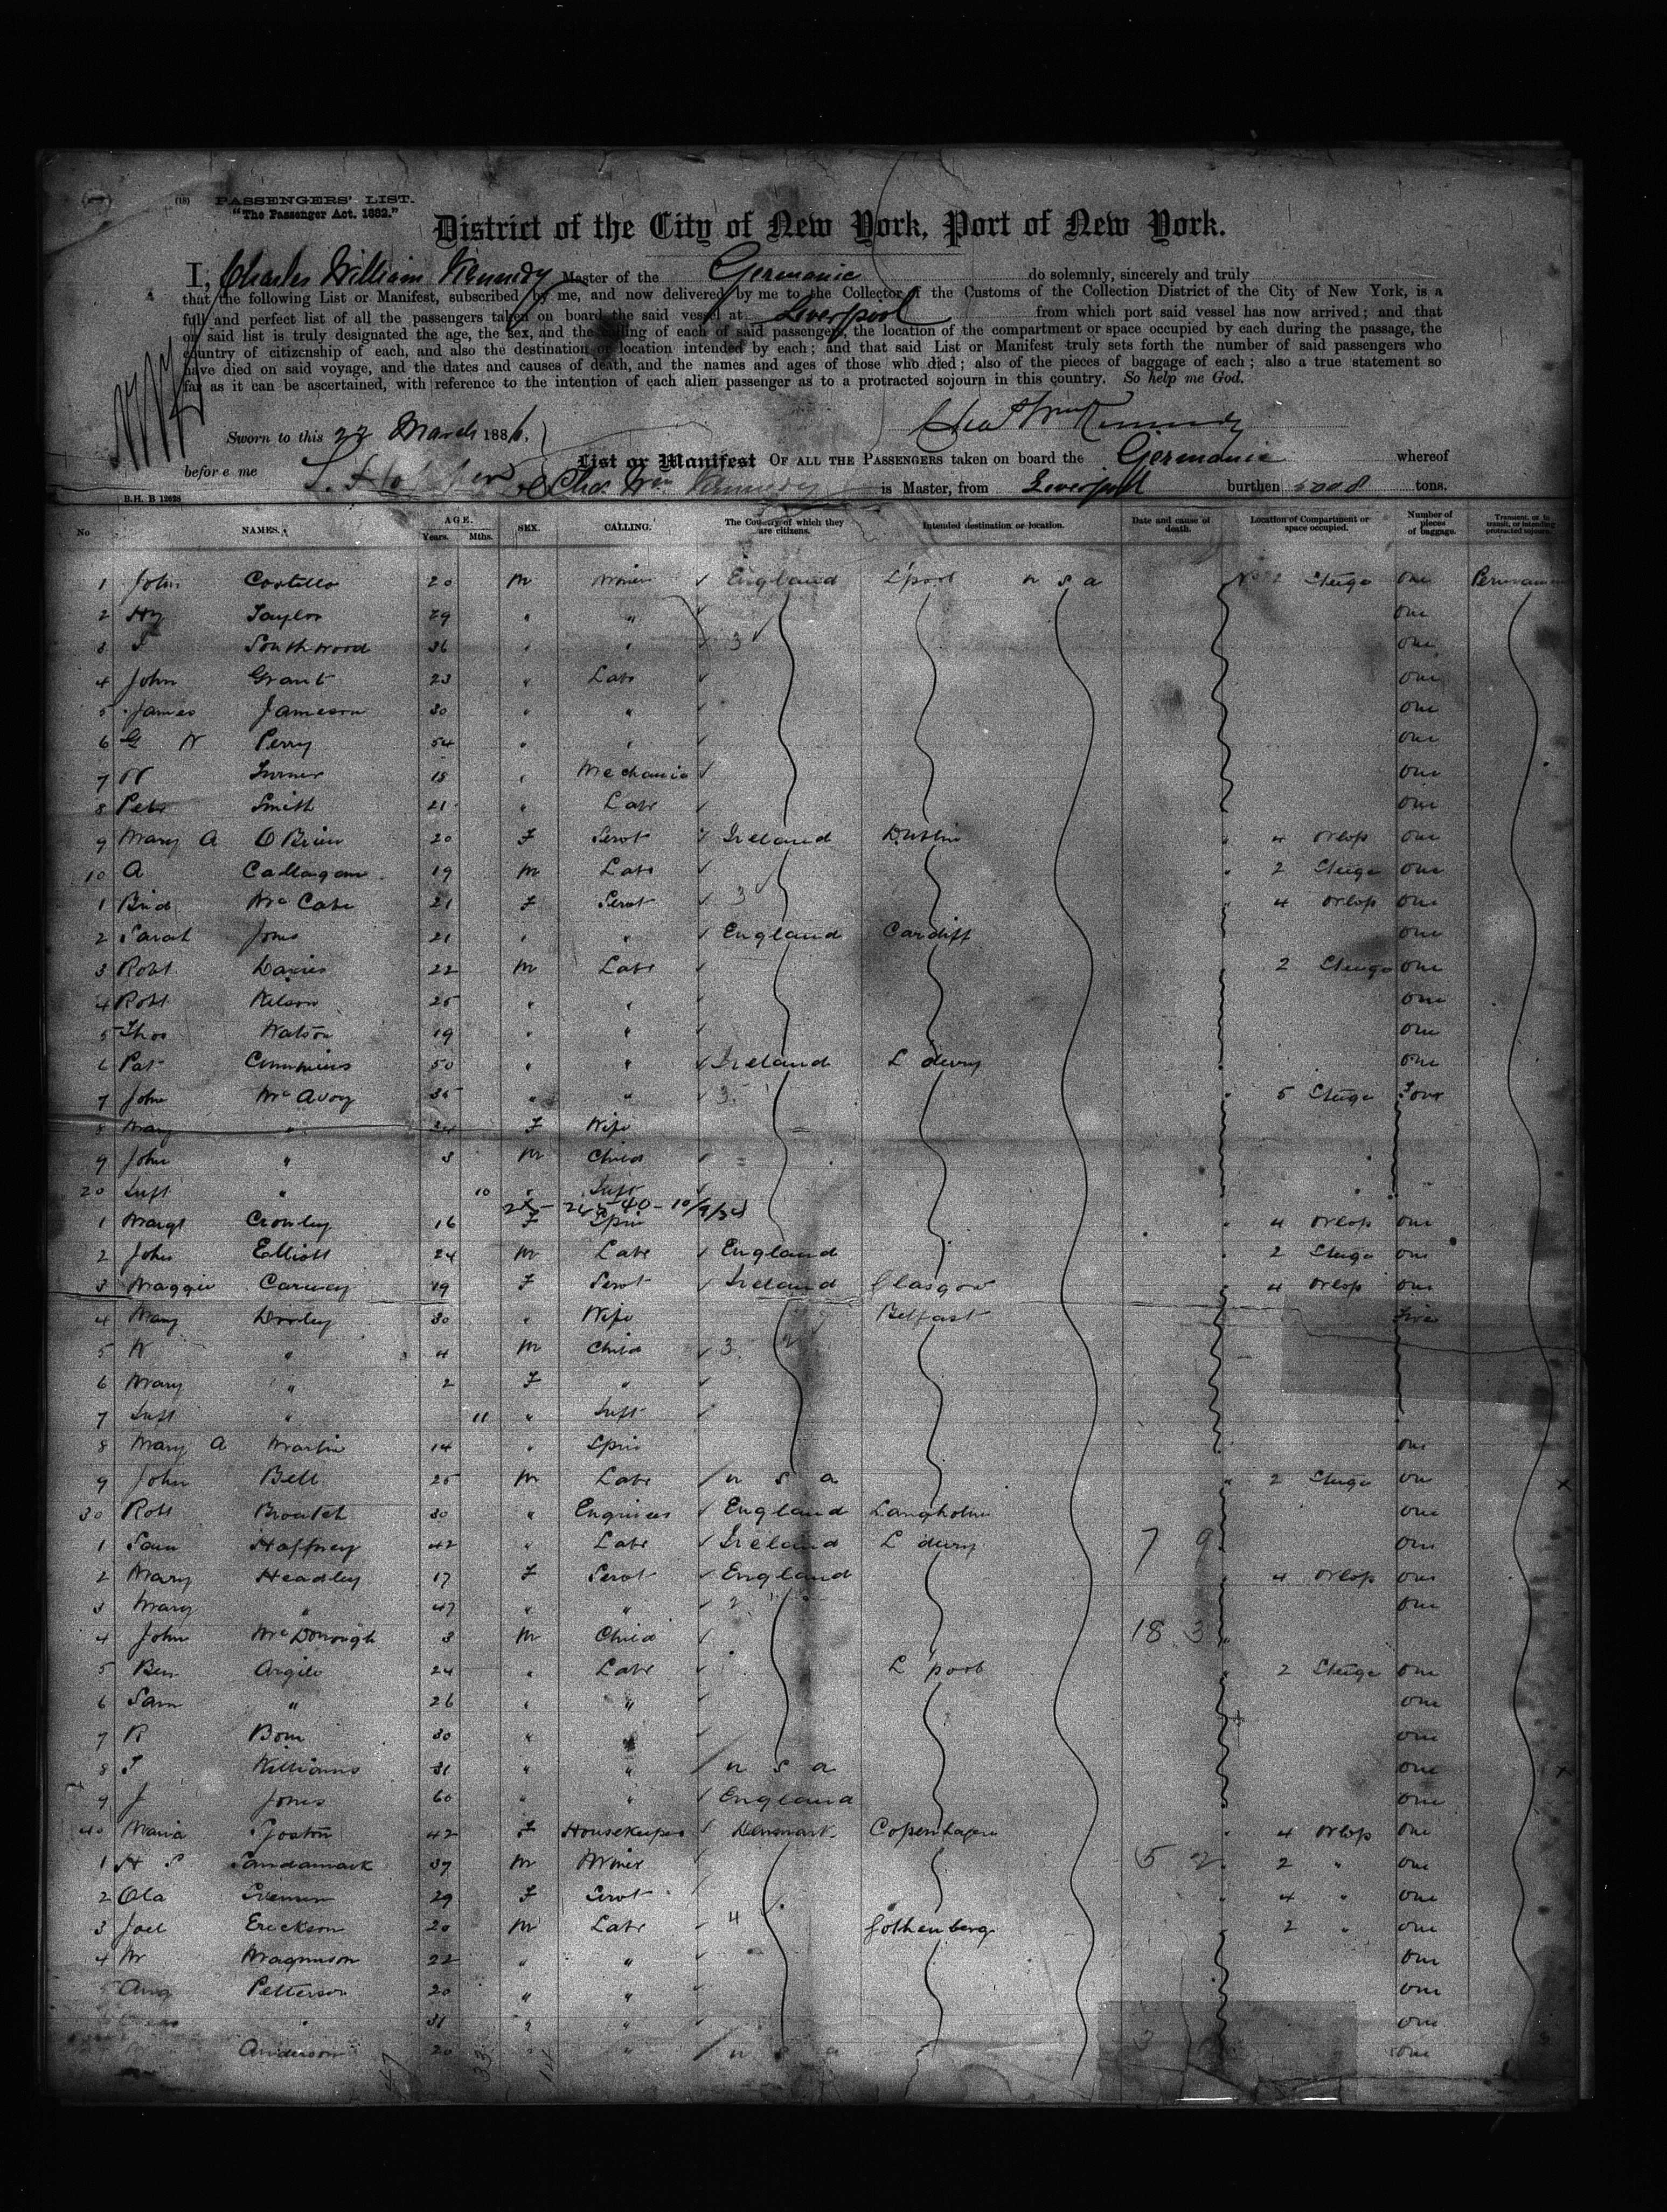 (18) PASSENGERS' LIST.
"The Passenger Act. 1882."
District of the City of New York, Port of New York.
I, Charles William Kennedy Master of the Germanic do solemnly, sincerely and truly
that the following List or Manifest, subscribed by me, and now delivered by me to the Collector of the Customs of the Collection District of the City of New York, is a
full and perfect list of all the passengers taken on board the said vessel at Liverpool from which port said vessel has now arrived; and that
on said list is truly designated the age, the sex, and the calling of each of said passengers, the location of the compartment or space occupied by each during the passage, the
country of citizenship of each, and also the destination or location intended by each; and that said List or Manifest truly sets forth the number of said passengers who
have died on said voyage, and the dates and causes of death, and the names and ages of those who died; also of the pieces of baggage of each; also a true statement so
far as it can be ascertained, with reference to the intention of each alien passenger as to a protracted sojourn in this country. So help me God.
Chas Wm Kennedy
Sworn to this 22 March 1886,
before me
List or Manifest OF ALL THE PASSENGERS taken on board the Germanic whereof
Chas. Wm Kennedy is Master, from Liverpool burthen 5008 tons.
B.H. B 12628
No NAMES. AGE. Years. Mths. SEX. CALLING. The Country of which they are citizens. Intended destination or location. Date and cause of death. Location of Compartment or space occupied. Number of pieces of baggage. Transient, or in transit, or intending protracted sojourn.
1 John Costello 20 M Miner England L'pool U S A No 2 Stege One
2 Hy Taylor 29 " " One
3 Southwood 36 " " 3 One
4 John Grant 23 " Labr One
5 James Jameson 30 " " One
6 G W Perry 54 " " One
7 W Turner 18 " Mechanic One
8 Peter Smith 21 " Labr One
9 Mary A O'Brien 20 F Servt Ireland Dublin " 4 Orlop One
10 A Callagan 19 M Labr " 2 Stege One
1 Brid McCabe 21 F Servt 3 " 4 Orlop One
2 Sarah Jones 21 " " England Cardiff One
3 Robt Davies 22 M Labr 2 Stege One
4 Robt Wilson 25 " " One
5 Thos Watson 19 " " One
6 Pat Cummins 50 " " Ireland L'derry One
7 John McAvoy 35 " " 3 " 5 Stege Four
8 Mary " F Wife
9 John " 3 M Child
20 Inft " 10 " Inft
1 Margt Crowley 16 F Spin " 4 Orlop One
2 John Elliott 24 M Labr England " 2 Stege One
3 Maggie 19 F Servt Ireland Glasgow " 4 Orlop One
4 Mary 30 " Wife Belfast Five
5 W " 4 M Child 3
6 Mary " 2 F "
7 Inft " 11 " Inft
8 Mary A Martin 14 " Spin One
9 John Bell 25 M Labr U S A " 2 Stege One
30 Robt 30 " Engineer England Langholm One
1 Sam 42 " Labr Ireland L'derry 7 9 One
2 Mary Headley 17 F Servt England " 4 Orlop One
3 Mary " 47 " " 2 One
4 John McDonough 3 M Child 18 3 "
5 Ben Argile 24 " Labr L'pool " 2 Stege One
6 Sam " 26 " " One
7 R 30 " " One
8 Williams 31 " " U S A One
9 J Jones 60 " " England One
40 Maria 42 F Housekeeper Denmark Copenhagen " 4 Orlop One
1 Sandamark 37 M Miner 5 2 2 " One
2 Ola 29 F Servt 4 " One
3 Joel Erickson 20 M Labr 4 Gothenberg 2 " One
4 Magnuson 22 " " One
5 Aug Petterson 20 " " One
31 " " One
Anderson 20 " " U S A One